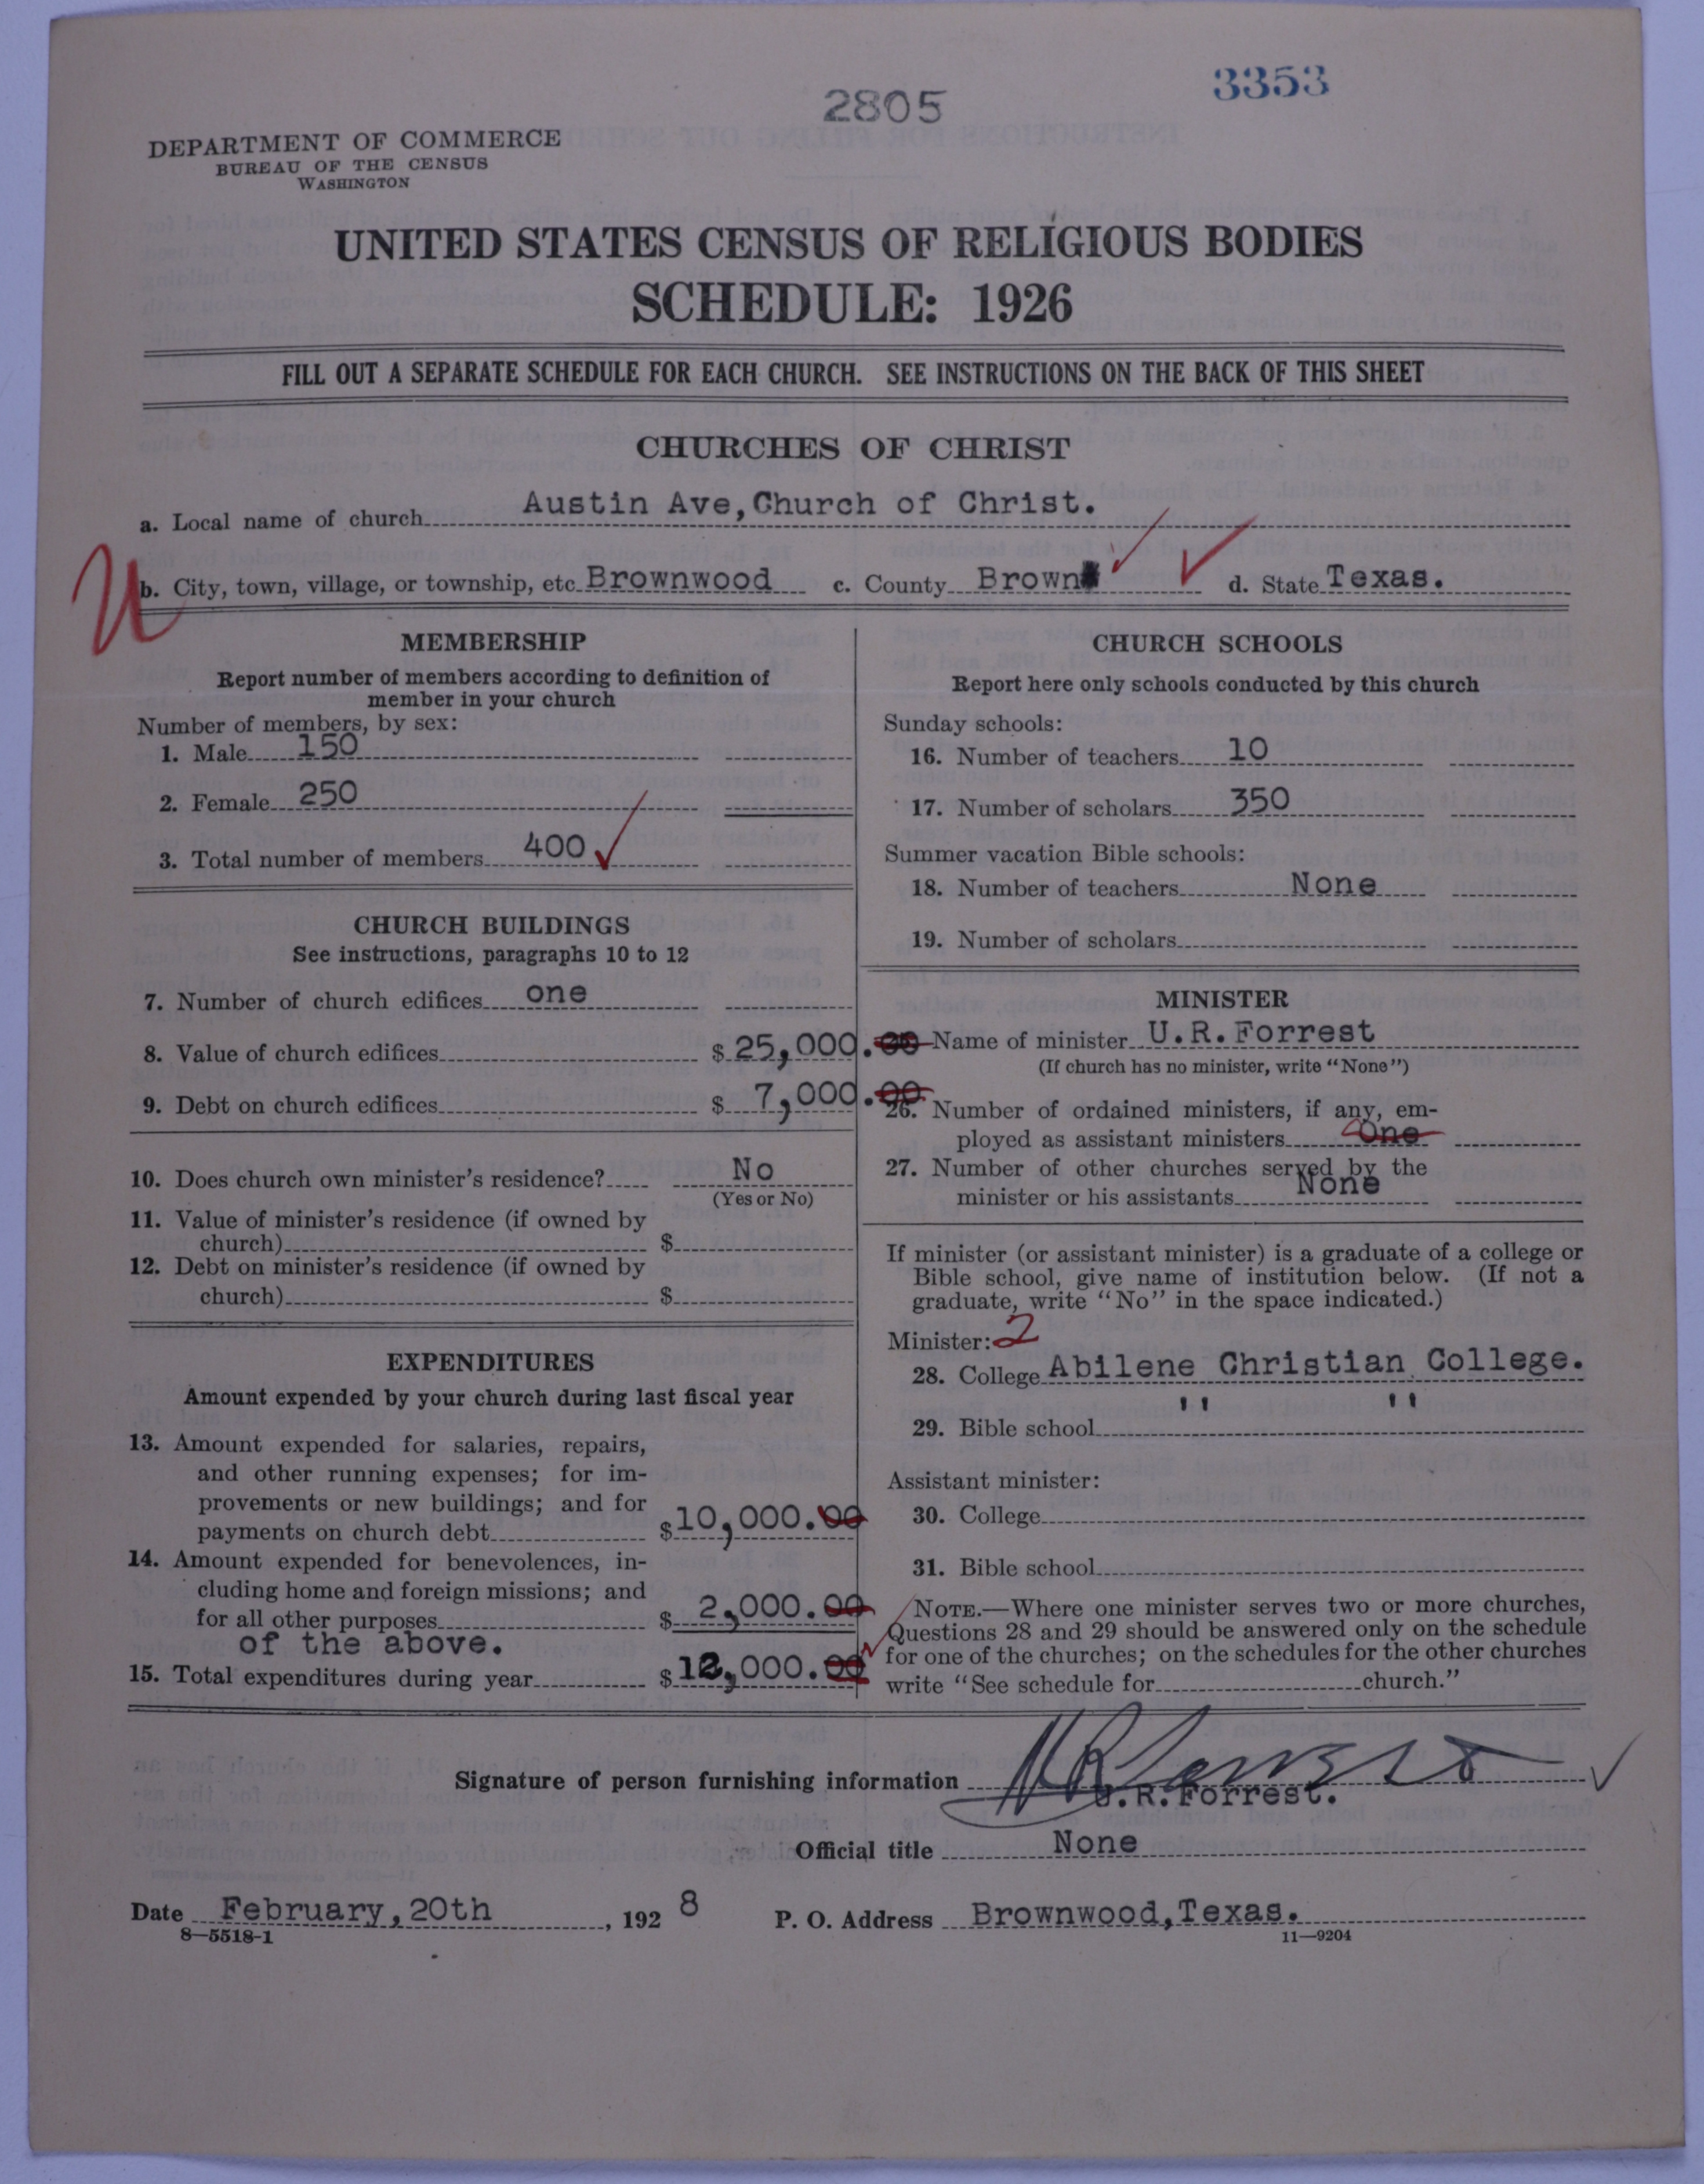 2805
3353
DEPARTMENT OF COMMERCE
BUREAU OF THE CENSUS
WASHINGTON
UNITED STATES CENSUS OF RELIGIOUS BODIES
SCHEDULE: 1926
FILL OUT A SEPARATE SCHEDULE FOR EACH CHURCH. SEE INSTRUCTIONS ON THE BACK OF THIS SHEET
CHURCHES OF CHRIST
a. Local name of church Austin Ave, Church of Christ.
b. City, town, village, or township, etc. Brownwood c. County Brown d. State Texas.
MEMBERSHIP
Report number of members according to definition of
member in your church
Number of members, by sex:
1. Male 150
2. Female 250
3. Total number of members 400
CHURCH BUILDINGS
See instructions, paragraphs 10 to 12
7. Number of church edifices one
8. Value of church edifices $ 25,000.00
9. Debt on church edifices $ 7,000.00
10. Does church own minister's residence? No
(Yes or No)
11. Value of minister's residence (if owned by
church) $
12. Debt on minister's residence (if owned by
church) $
EXPENDITURES
Amount expended by your church during last fiscal year
13. Amount expended for salaries, repairs,
and other running expenses; for im-
provements or new buildings; and for
payments on church debt $10,000.00
14. Amount expended for benevolences, in-
cluding home and foreign missions; and
for all other purposes $ 2,000.00
of the above.
15. Total expenditures during year $12,000.00
CHURCH SCHOOLS
Report here only schools conducted by this church
Sunday schools:
16. Number of teachers 10
17. Number of scholars 350
Summer vacation Bible schools:
18. Number of teachers None
19. Number of scholars
MINISTER
Name of minister U.R.Forrest
(If church has no minister, write "None")
26. Number of ordained ministers, if any, em-
ployed as assistant ministers One
27. Number of other churches served by the
minister or his assistants None
If minister (or assistant minister) is a graduate of a college or
Bible school, give name of institution below. (If not a
graduate, write "No" in the space indicated.)
Minister: 2
28. College Abilene Christian College.
29. Bible school " "
Assistant minister:
30. College
31. Bible school
NOTE.—Where one minister serves two or more churches,
Questions 28 and 29 should be answered only on the schedule
for one of the churches; on the schedules for the other churches
write "See schedule for church."
Signature of person furnishing information U R Forrest
U.R.Forrest.
Official title None
Date February, 20th, 1928 P. O. Address Brownwood, Texas.
8—5518-1
11—9204